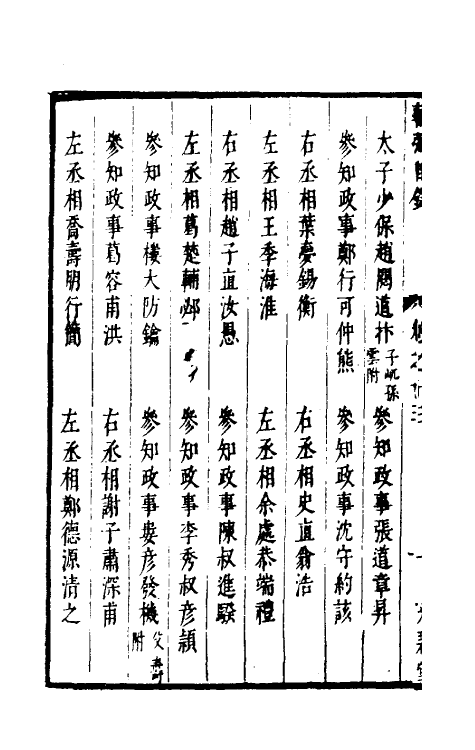 太子少保趙閱道抃子㞦孫雲附
參知政事張道章昇
參知政事鄭行可仲熊
參知政事沈守約該
右丞相葉夢錫衡
右丞相史直翁浩
左丞相王季海淮
左丞相余處恭端禮
右丞相趙子直汝愚
參知政事陳叔進騤
左丞相葛楚輔邲
參知政事李秀叔彥穎
參知政事樓大防鑰
參知政事婁彥發機父壽附
參知政事葛容甫洪
右丞相謝子肅深甫
左丞相喬壽朋行簡
左丞相鄭德源清之